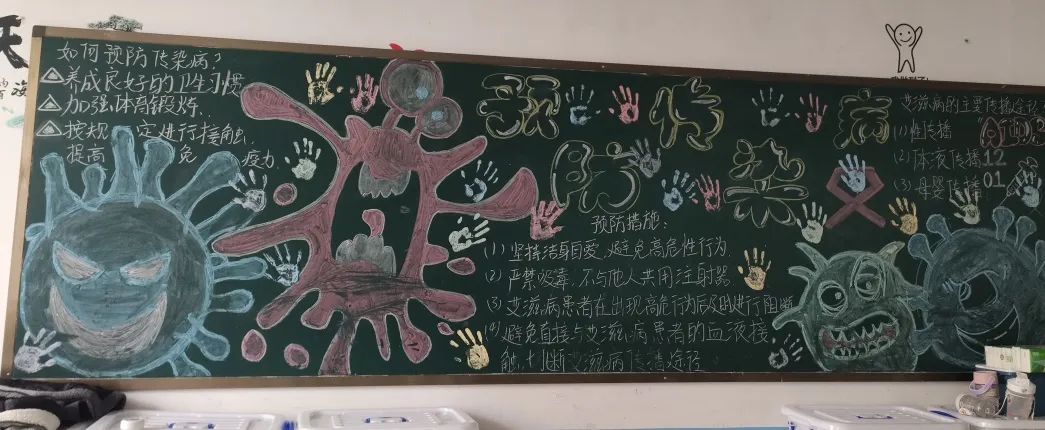 如何预防传染病?
养成良好的卫生习惯
加强体育锻炼.
按规定进行接触,
提高免疫力
预防传染病
预防措施:
(1) 坚持洁身自爱,避免高危性行为
(2) 严禁吸毒,不与他人共用注射器
(3) 艾滋病患者在出现高危行为后及时进行阻断
(4) 避免直接与艾滋病患者的血液接
触,切断艾滋病传播途径
艾滋病的主要传播途径
(1) 性传播
(2) 体液传播
(3) 母婴传播
12
01